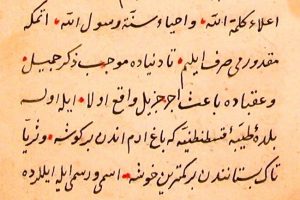 اعلاء كلمة الله * واحياء سنة رسول الله * اتمكه
مقدورمى صرف ايلم * تا دنياده موجب ذكر جميل *
وعقباده باعث اجر جزيل واقع اولا * ايله اولسه
بلدهٔ طيبهٔ قسطنطنيه كه باغ ارم اندن بر كوشه * وثريا
تاك بستانندن بر كمترين خوشه * اسمى ورسمى ايله ايللرده